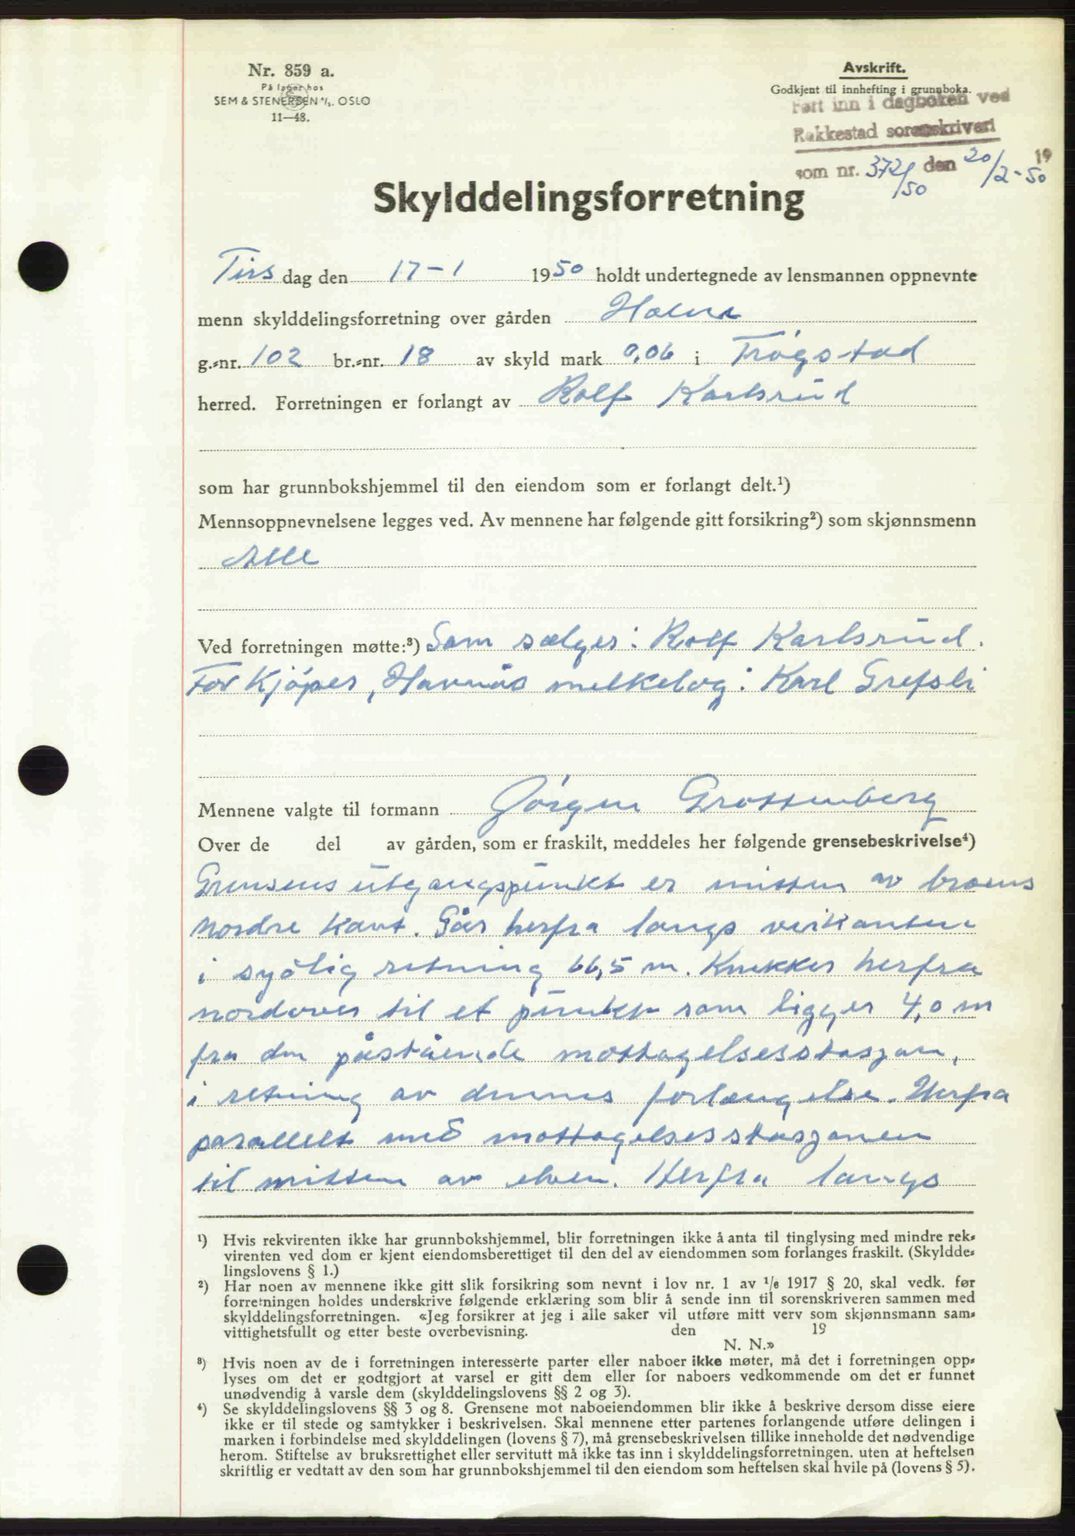 Nr. 859 a.
På lager hos
SEM & STENERSEN A/S. OSLO
11—48.
Avskrift.
Godkjent til innhefting i grunnboka.
Ført inn i dagboken ved
Rakkestad sorenskriveri
som nr. 372/50 den 20/2-50 19
Skylddelingsforretning
Tirsdag den 17-1 1950 holdt undertegnede av lensmannen oppnevnte
menn skylddelingsforretning over gården
g.-nr. 102 br.-nr. 18 av skyld mark 0,06 i Trøgstad
herred. Forretningen er forlangt av Rolf Karlsrud
som har grunnbokshjemmel til den eiendom som er forlangt delt.¹)
Mennsoppnevnelsene legges ved. Av mennene har følgende gitt forsikring²) som skjønnsmenn
Alle
Ved forretningen møtte:³) Som sælger: Rolf Karlsrud.
For Kjøper, Havnås melkelag: Karl Grefsli
Mennene valgte til formann Jørgen
Over de del av gården, som er fraskilt, meddeles her følgende grensebeskrivelse⁴)
Grensens utgangspunkt er mitten av broens
nordre kant. Går herfra langs veikanten
i sydlig retning 66,5 m. Knekker herfra
nordover til et punkt som ligger 4,0 m
fra den påstående mottagelsesstasjon,
i retning av dennes forlengelse. Herfra
parallelt med mottagelsesstasjonen
til mitten av elven. Herfra langs
¹) Hvis rekvirenten ikke har grunnbokshjemmel, blir forretningen ikke å anta til tinglysing med mindre rek-
virenten ved dom er kjent eiendomsberettiget til den del av eiendommen som forlanges fraskilt. (Skyldde-
lingslovens § 1.)
²) Har noen av mennene ikke gitt slik forsikring som nevnt i lov nr. 1 av 1/6 1917 § 20, skal vedk. før
forretningen holdes underskrive følgende erklæring som blir å sende inn til sorenskriveren sammen med
skylddelingsforretningen. «Jeg forsikrer at jeg i alle saker vil utføre mitt verv som skjønnsmann sam-
vittighetsfullt og etter beste overbevisning. den 19
N. N.»
³) Hvis noen av de i forretningen interesserte parter eller naboer ikke møter, må det i forretningen opp-
lyses om det er godtgjort at varsel er gitt dem eller for naboers vedkommende om det er funnet
unødvendig å varsle dem (skylddelingslovens §§ 2 og 3).
⁴) Se skylddelingslovens §§ 3 og 8. Grensene mot naboeiendommen blir ikke å beskrive dersom disse eiere
ikke er til stede og samtykker i beskrivelsen. Skal mennene etter partenes forlangende utføre delingen i
marken i forbindelse med skylddelingen (lovens § 7), må grensebeskrivelsen tillike inneholde det nødvendige
herom. Stiftelse av bruksrettighet eller servitutt må ikke tas inn i skylddelingsforretningen. uten at heftelsen
skriftlig er vedtatt av den som har grunnbokshjemmel til den eiendom som heftelsen skal hvile på (lovens § 5).